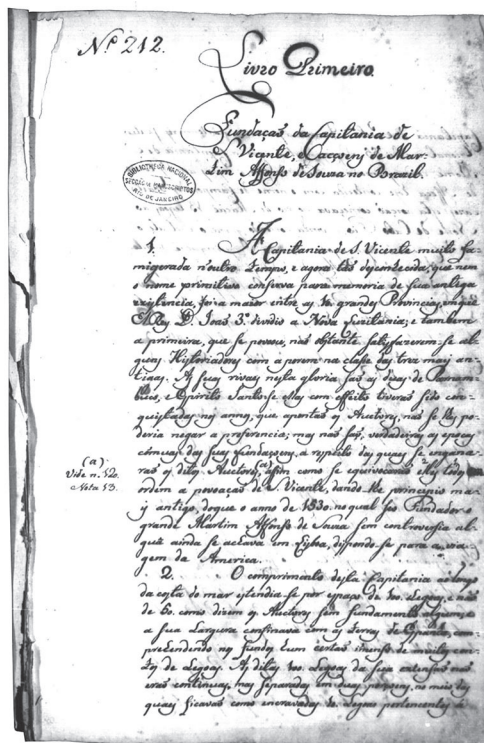 Nº 212.
Livro Primeiro.
Fundaçaõ da Capitania de
S. Vicente, e Acçoens de Mar-
tim Affonso de Souza no Brazil.
BIBLIOTHECA NACIONAL
SECÇÃO DE MANUSCRIPTOS
RIO DE JANEIRO
1. A Capitania de S. Vicente muito fa-
migerada n'outro tempo, e agora taõ desconhecida, que nem
o nome primitivo conserva para memoria de sua antiga
existencia, foi a maior entre as grandes Provincias, em que
El Rey D. Joaõ 3º dividio a Nova Luzitania; e tambem
a primeira, que se povoou, naõ obstante satisfazerem-se al-
guns Historiadores com a porem na classe das tres mais an-
tigas. As suas rivaes nesta gloria saõ as duas de Parnam-
buco, e Espirito Santo: se ellas com effeito tiveraõ sido con-
quistadas nos annos, que apontaõ os Auctores, naõ se lhes po-
deria negar a preferencia; mas naõ saõ verdadeiras as epocas
das suas fundaçoens, a respeito das quaes se engana-
raõ os ditos Auctores, (a) assim como se equivocaraõ
ordem a povoaçaõ de S. Vicente, dando-lhe principio ma-
is antigo, do que o anno de 1530. no qual seu Fundador o
grande Martim Affonso de Souza sem controversia al-
guã ainda se achava em Lisboa, dispondo-se para a via-
gem da America.
(a)
Vide n. 12.
e Nota 13.
2. O comprimento desta Capitania ao longo
da costa do mar estendia-se por espaço de 100. Legoas, e naõ
de 50. como dizem os Auctores sem fundamento algum: e
a sua Largura confinava com as terras de Espanha, com-
prehendendo no fundo hum certaõ immenso de muitos cen-
tos de Legoas. As ditas 100. Legoas da sua extensaõ naõ
eraõ continuas, mas separadas em duas porçoens, no meio das
quaes ficavaõ como encravadas Legoas pertencentes á